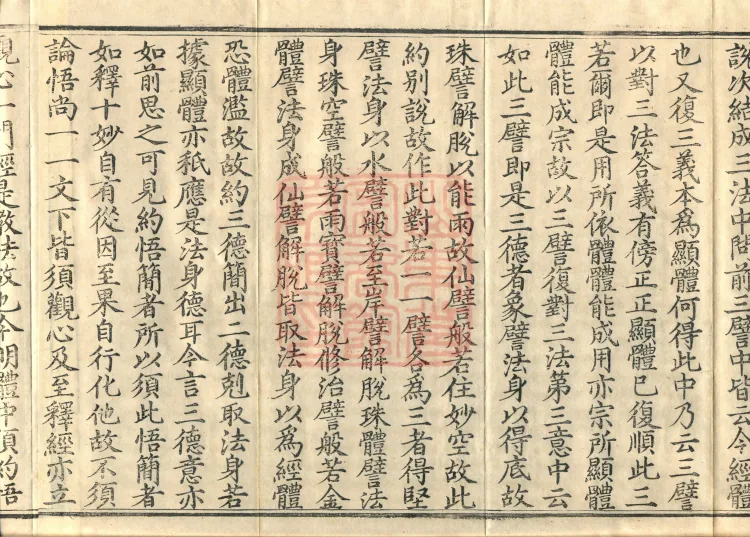 說次結成三法中問前三譬中皆云今經體
也又復三義本為顯體何得此中乃云三譬
以對三法答義有傍正正顯體已復順此三
若爾即是用所依體體能成用亦宗所顯體
體能成宗故以三譬復對三法第三意中云
如此三譬即是三德者象譬法身以得底故
珠譬解脫以能雨故仙譬般若住妙空故此
約別說故作此對若一一譬各為三者得堅
譬法身以水譬般若至岸譬解脫珠體譬法
身珠空譬般若雨寶譬解脫修治譬般若金
體譬法身成仙譬解脫皆取法身以為經體
恐體濫故故約三德簡出二德剋取法身若
據顯體亦秖應是法身德耳今言三德意亦
如前思之可見約悟簡者所以須此悟簡者
如釋十妙自有從因至果自行化他故不須
論悟尚一一文下皆須觀心及至釋經亦立
觀心一門經是教法故也今明體中須約悟